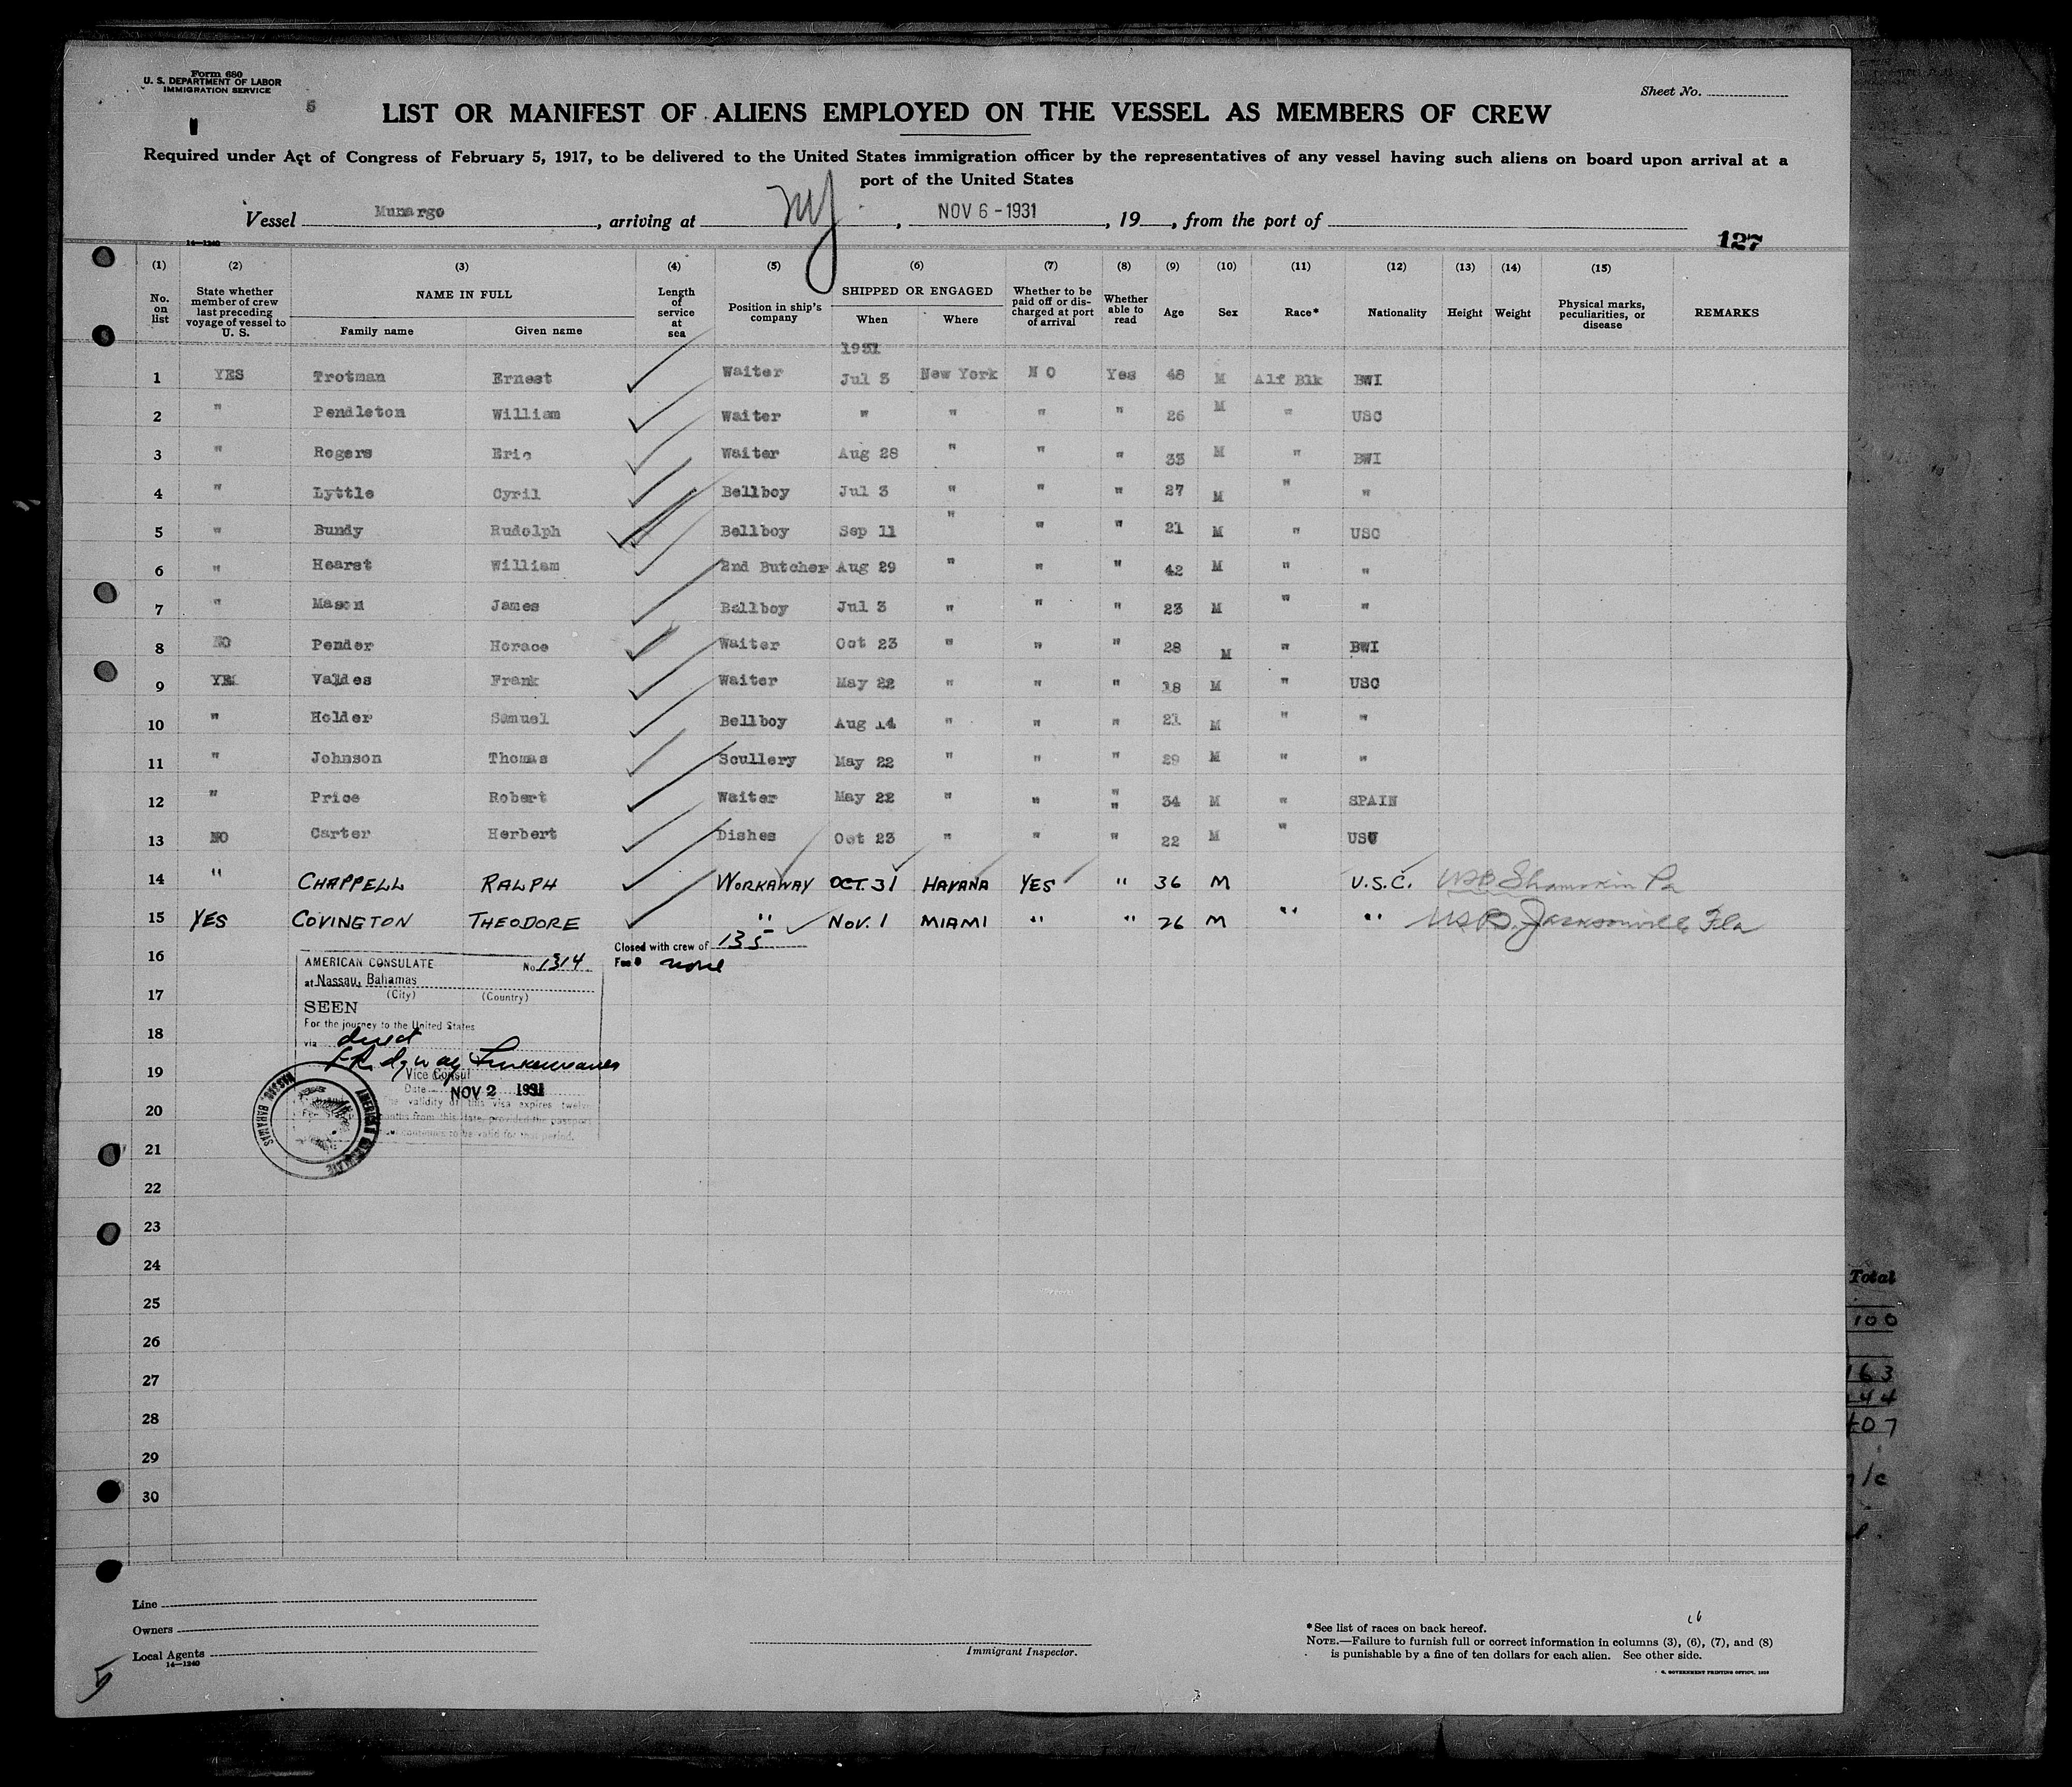 Form 680
U. S. DEPARTMENT OF LABOR
IMMIGRATION SERVICE
5
Sheet No.
LIST OR MANIFEST OF ALIENS EMPLOYED ON THE VESSEL AS MEMBERS OF CREW
Required under Act of Congress of February 5, 1917, to be delivered to the United States immigration officer by the representatives of any vessel having such aliens on board upon arrival at a
port of the United States
Vessel Munargo, arriving at NY, NOV 6 - 1931, 19 , from the port of
14—1240
127
(1) (2) (3) (4) (5) (6) (7) (8) (9) (10) (11) (12) (13) (14) (15)
No. on list State whether member of crew last preceding voyage of vessel to U. S. NAME IN FULL Family name Given name Length of service at sea Position in ship's company SHIPPED OR ENGAGED When Where Whether to be paid off or discharged at port of arrival Whether able to read Age Sex Race* Nationality Height Weight Physical marks, peculiarities, or disease REMARKS
1931
1 YES Trotman Ernest Waiter Jul 3 New York NO Yes 48 M Alf Blk BWI
2 " Pendleton William Waiter " " " " 26 M " USC
3 " Rogers Eric Waiter Aug 28 " " " 33 M " BWI
4 " Lyttle Cyril Bellboy Jul 3 " " " 27 M " "
5 " Bundy Rudolph Bellboy Sep 11 " " " 21 M " USC
6 " Hearst William 2nd Butcher Aug 29 " " " 42 M " "
7 " Mason James Bellboy Jul 3 " " " 23 M " "
8 NO Pender Horace Waiter Oct 23 " " " 28 M " BWI
9 YES Valdes Frank Waiter May 22 " " " 18 M " USC
10 " Holder Samuel Bellboy Aug 14 " " " 21 M " "
11 " Johnson Thomas Scullery May 22 " " " 29 M " "
12 " Price Robert Waiter May 22 " " " " 34 M " SPAIN
13 NO Carter Herbert Dishes Oct 23 " " " 22 M " USC
14 " CHAPPELL RALPH WORKAWAY OCT. 31 HAVANA YES " 36 M U.S.C. USB Shamokin Pa
15 YES COVINGTON THEODORE " NOV. 1 MIAMI " " 26 M " " USB. Jacksonville Fla
16
Closed with crew of 135
Fee $ none
AMERICAN CONSULATE No. 1314
at Nassau, Bahamas
(City) (Country)
17
SEEN
For the journey to the United States
18
via direct
19
Vice Consul
Date NOV 2 1931
The validity of this visa expires twelve
months from this date, provided the passport
continues to be valid for that period.
AMERICAN CONSULATE NASSAU, BAHAMAS
20
21
22
23
24
25
26
27
28
29
30
Total
100
163
244
407
Line
Owners
Local Agents
14—1240
5
Immigrant Inspector.
*See list of races on back hereof.
NOTE.—Failure to furnish full or correct information in columns (3), (6), (7), and (8)
is punishable by a fine of ten dollars for each alien. See other side.
GOVERNMENT PRINTING OFFICE